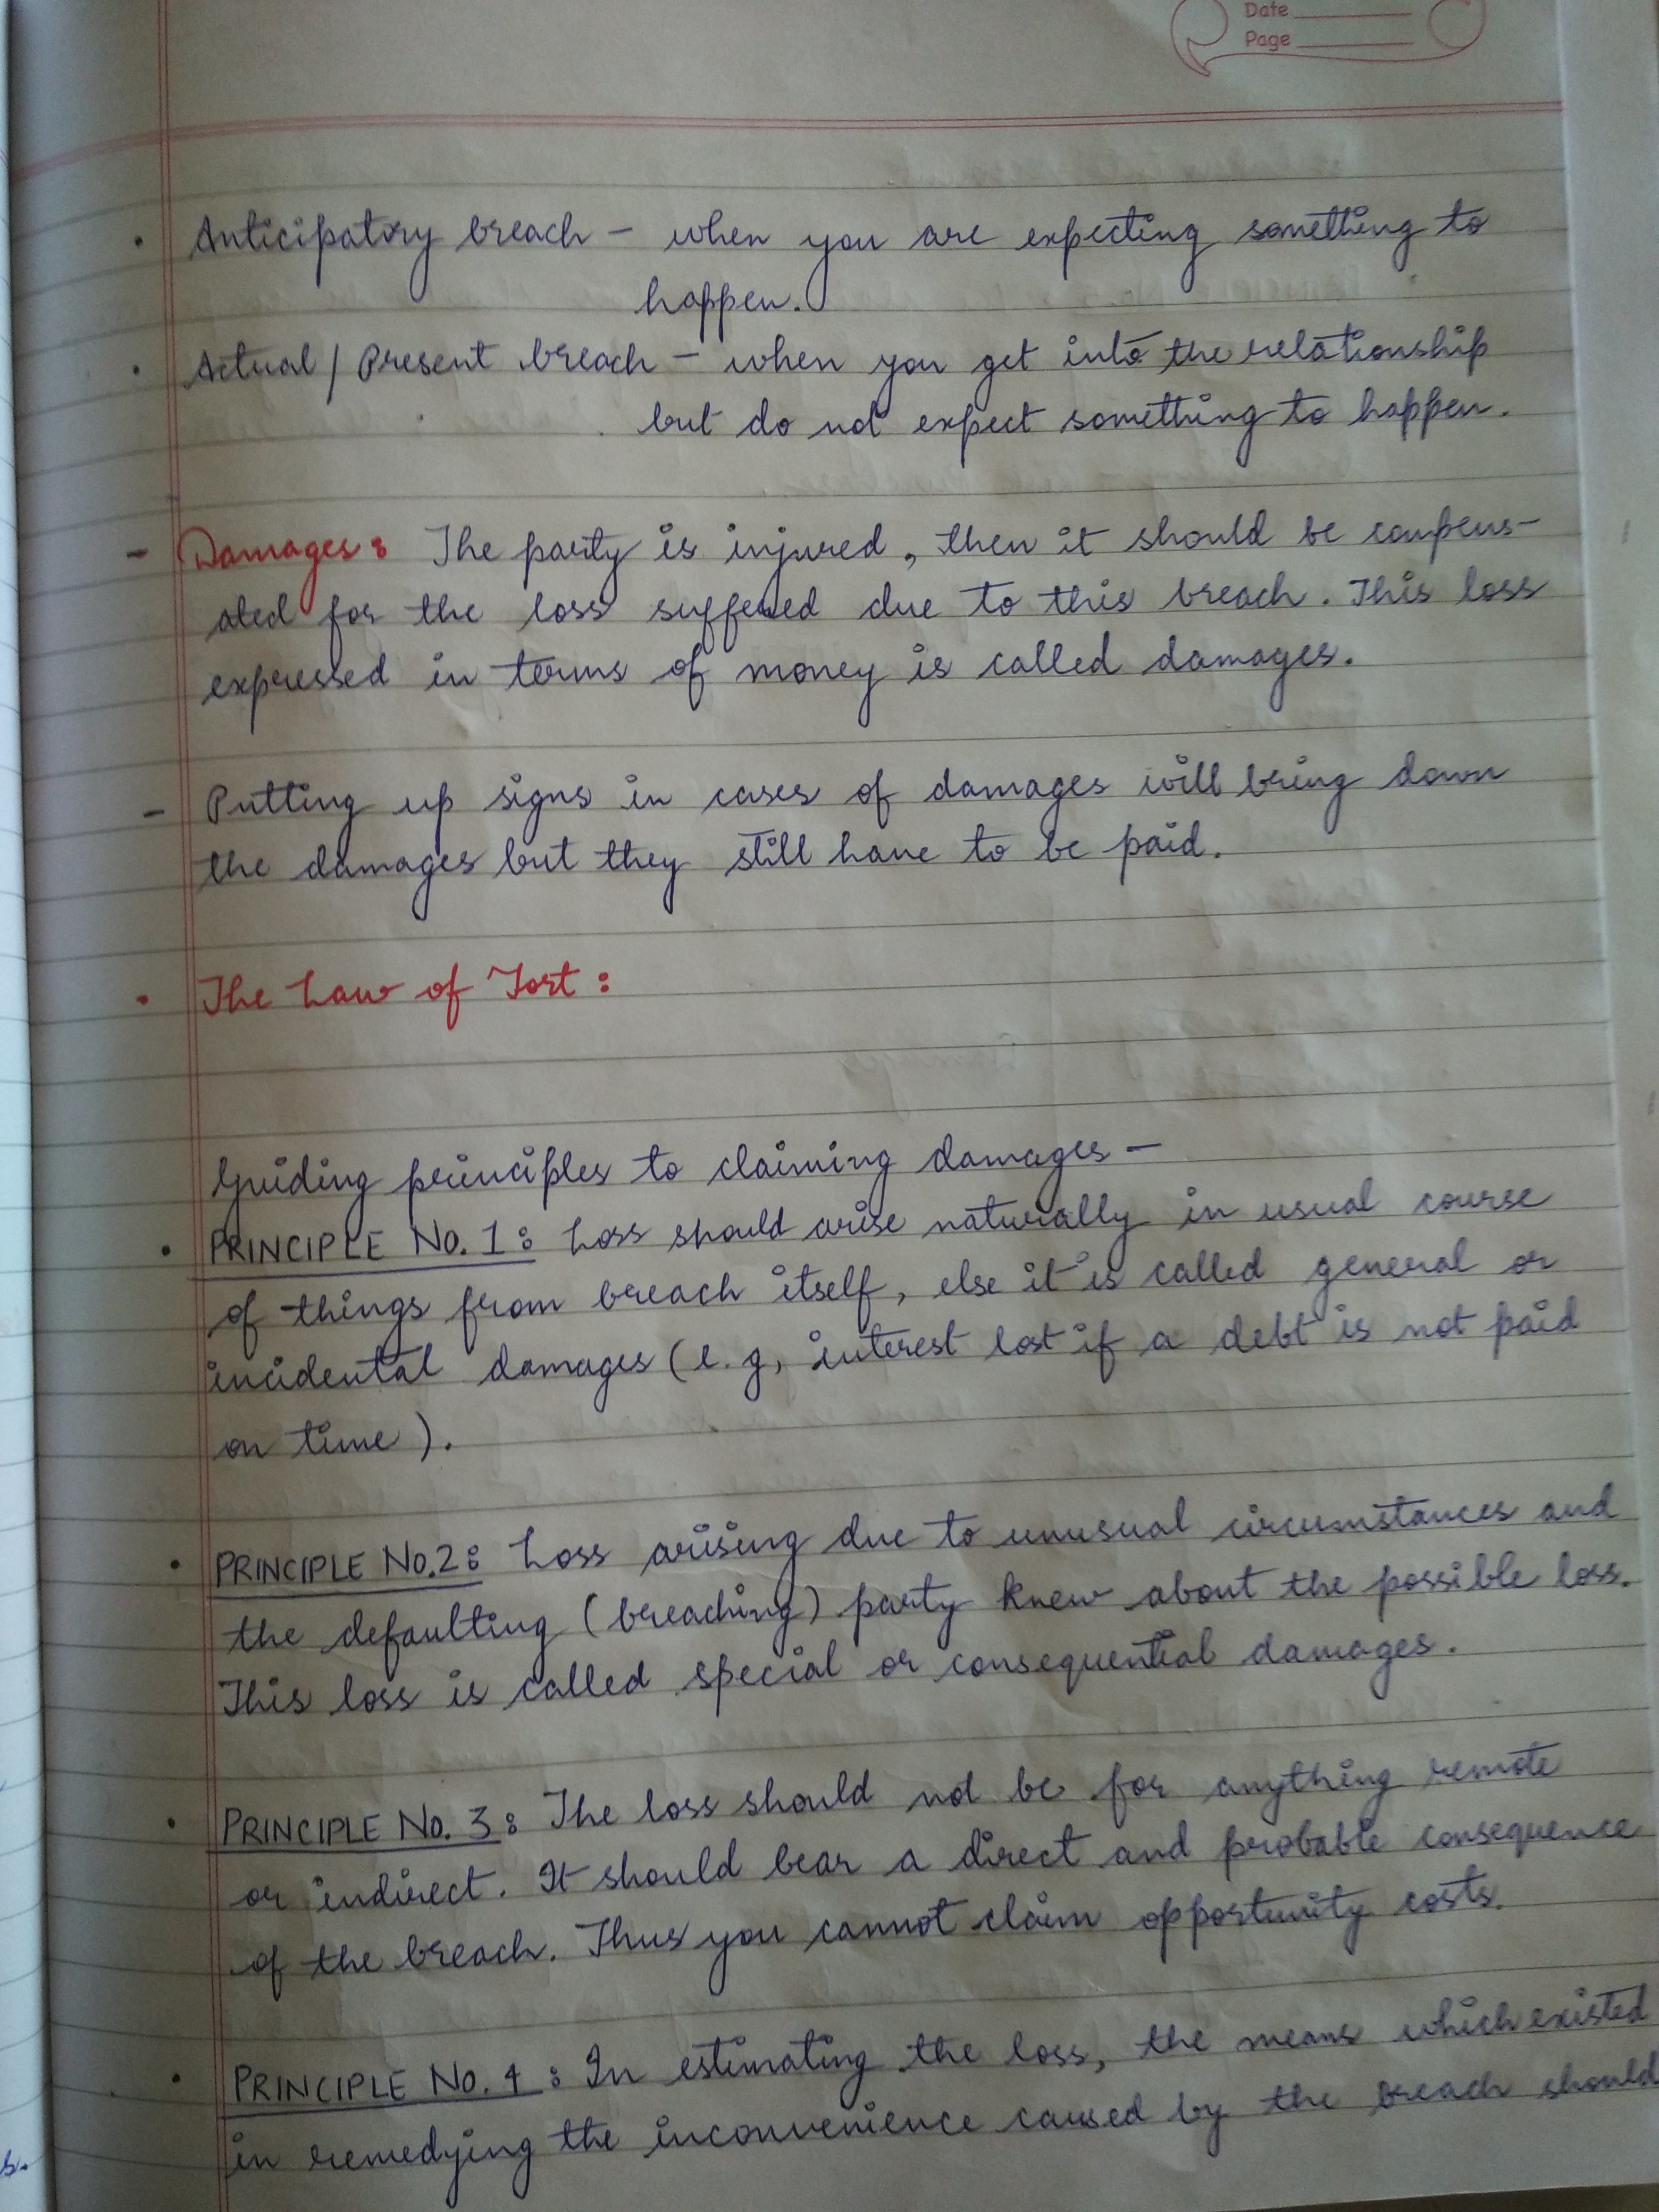 Date
Page
• Anticipatory breach – when you are expecting something to
happen.
• Actual / Present breach – when you get into the relationship
but do not expect something to happen.
- Damages : The party is injured, then it should be compens-
ated for the loss suffered due to this breach. This loss
expressed in terms of money is called damages.
- Putting up signs in cases of damages will bring down
the damages but they still have to be paid.
• The Law of Tort :
Guiding principles to claiming damages –
• PRINCIPLE No. 1 : Loss should arise naturally in usual course
of things from breach itself, else it is called general or
incidental damages (e.g, interest lost if a debt is not paid
on time ).
• PRINCIPLE No.2 : Loss arising due to unusual circumstances and
the defaulting (breaching) party knew about the possible loss.
This loss is called special or consequential damages.
• PRINCIPLE No. 3 : The loss should not be for anything remote
or indirect. It should bear a direct and probable consequence
of the breach. Thus you cannot claim opportunity costs.
• PRINCIPLE No. 4 : In estimating the loss, the means which existed
in remedying the inconvenience caused by the breach should
s.